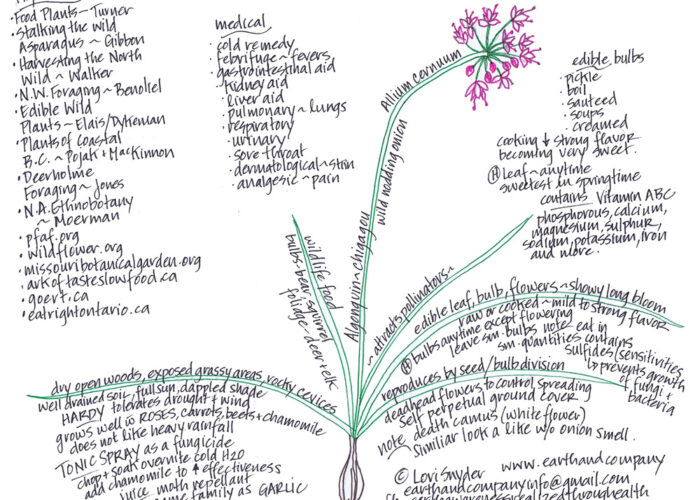 Food Plants ~ Turner
Stalking the Wild
Asparagus ~ Gibbon
Harvesting the North
Wild ~ Walker
N.W. Foraging ~ Benoliel
Edible Wild
Plants ~ Elais/Dykeman
Plants of Coastal
B.C. ~ Pojak + MacKinnon
Deerholme
Foraging ~ Jones
N.A. Ethnobotany
~ Moerman
pfaf.org
wildflower.org
missouribotanicalgarden.org
arkoftasteslowfood.ca
goert.ca
eatrightontario.ca
medical
cold remedy
febrifuge ~ fevers
gastrointestinal aid
kidney aid
liver aid
pulmonary ~ lungs
respiratory
urinary
sore throat
dermatological ~ skin
analgesic ~ pain
Allium cernuum
wild nodding onion
Algonquin ~ chigagou
edible, bulbs
pickle
boil
sauteed
soups
creamed
cooking ↓ strong flavor
becoming very sweet.
(H) Leaf ~ anytime
sweetest in springtime
contains Vitamin ABC
phosphorous, calcium,
magnesium, sulphur,
sodium, potassium, iron
and more.
wildlife food
bulbs - bear, squirrel
foliage - deer, elk
~ attracts pollinators ~
edible leaf, bulb, flowers ~ showy long bloom
raw or cooked ~ mild to strong flavor
(H) bulbs anytime except flowering
leave sm. bulbs note eat in
sm. quantities contains
sulfides (sensitivities
↳ prevents growth
of fungi +
bacteria
reproduces by seed / bulb division
deadhead flowers to control spreading
self perpetual ground cover
note death camus (white flower)
similiar look a like w/o onion smell.
dry open woods, exposed grassy areas, rocky cevices
well drained soil / full sun, dappled shade
HARDY tolerates drought + wind
grows well c̄ ROSES, carrots, beets + chamomile
does not like heavy rainfall
TONIC SPRAY as a fungicide
chop + soak overnite cold H2O
add chamomile to ↑ effectiveness
juice moth repellant
family as GARLIC
© Lori Snyder www.earthandcompany
earthandcompanyinfo@gmail.com